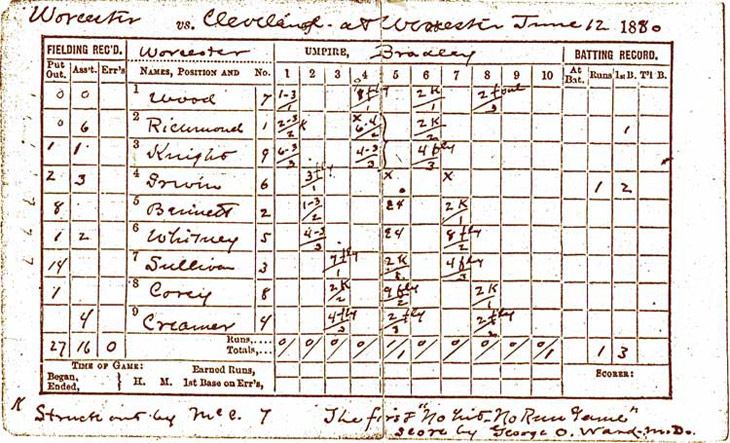 Worcester vs. Cleveland. at Worcester June 12 1880
FIELDING REC'D. Worcester UMPIRE, Bradley BATTING RECORD.
Put Out. Ass't. Err's NAMES, POSITION AND No. 1 2 3 4 5 6 7 8 9 10 At Bat. Runs 1st B. T'l B.
0 0 1 Wood 7 1-3/1 8 fly/1 2K/1 2 foul/3
0 6 2 Richmond 1 2-3 K/2 x 6-4/2 2K/2 1
1 1 3 Knight 9 6-3/3 4-3/3 4 fly/3
2 3 4 Irwin 6 3 fly/1 x x 1 2
8 5 Bennett 2 1-3/2 2K/1
1 2 6 Whitney 5 4-3/3 8 fly/2
14 7 Sullivan 3 7 fly/1 2K 4 fly/3
1 8 Corey 8 2K/2 9 fly/2 2K/1
4 9 Creamer 4 4 fly/3 2 fly/3 2 fly/2
27 16 0 Runs,.... Totals,... 0/ 0/ 0/ 0/ 0/1 0/ 0/ 0/ 0/ 0/1 1 3
TIME OF GAME: Earned Runs, SCORER:
Began, Ended, H. M. 1st Base on Err's,
K Struck out by McC. 7 The first "No hit-No Run Game"
Score by George O. Ward-M.D.